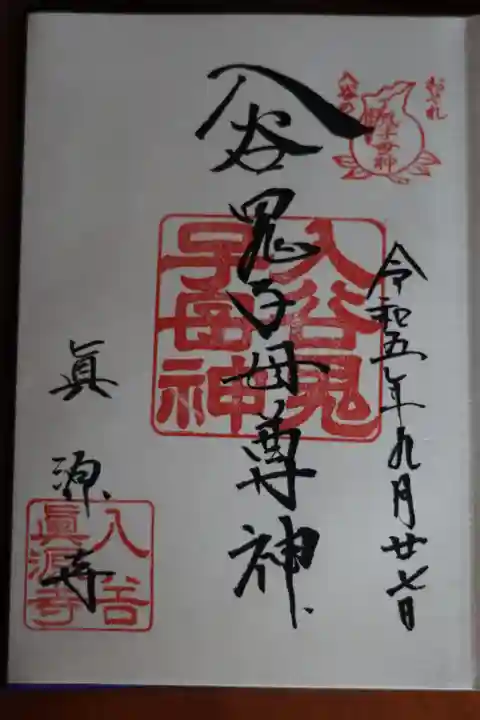 おそれ
入谷の
鬼子母神
令和五年九月廿七日
入谷鬼子母尊神
入谷鬼
子母神
眞源寺
入谷
眞源寺